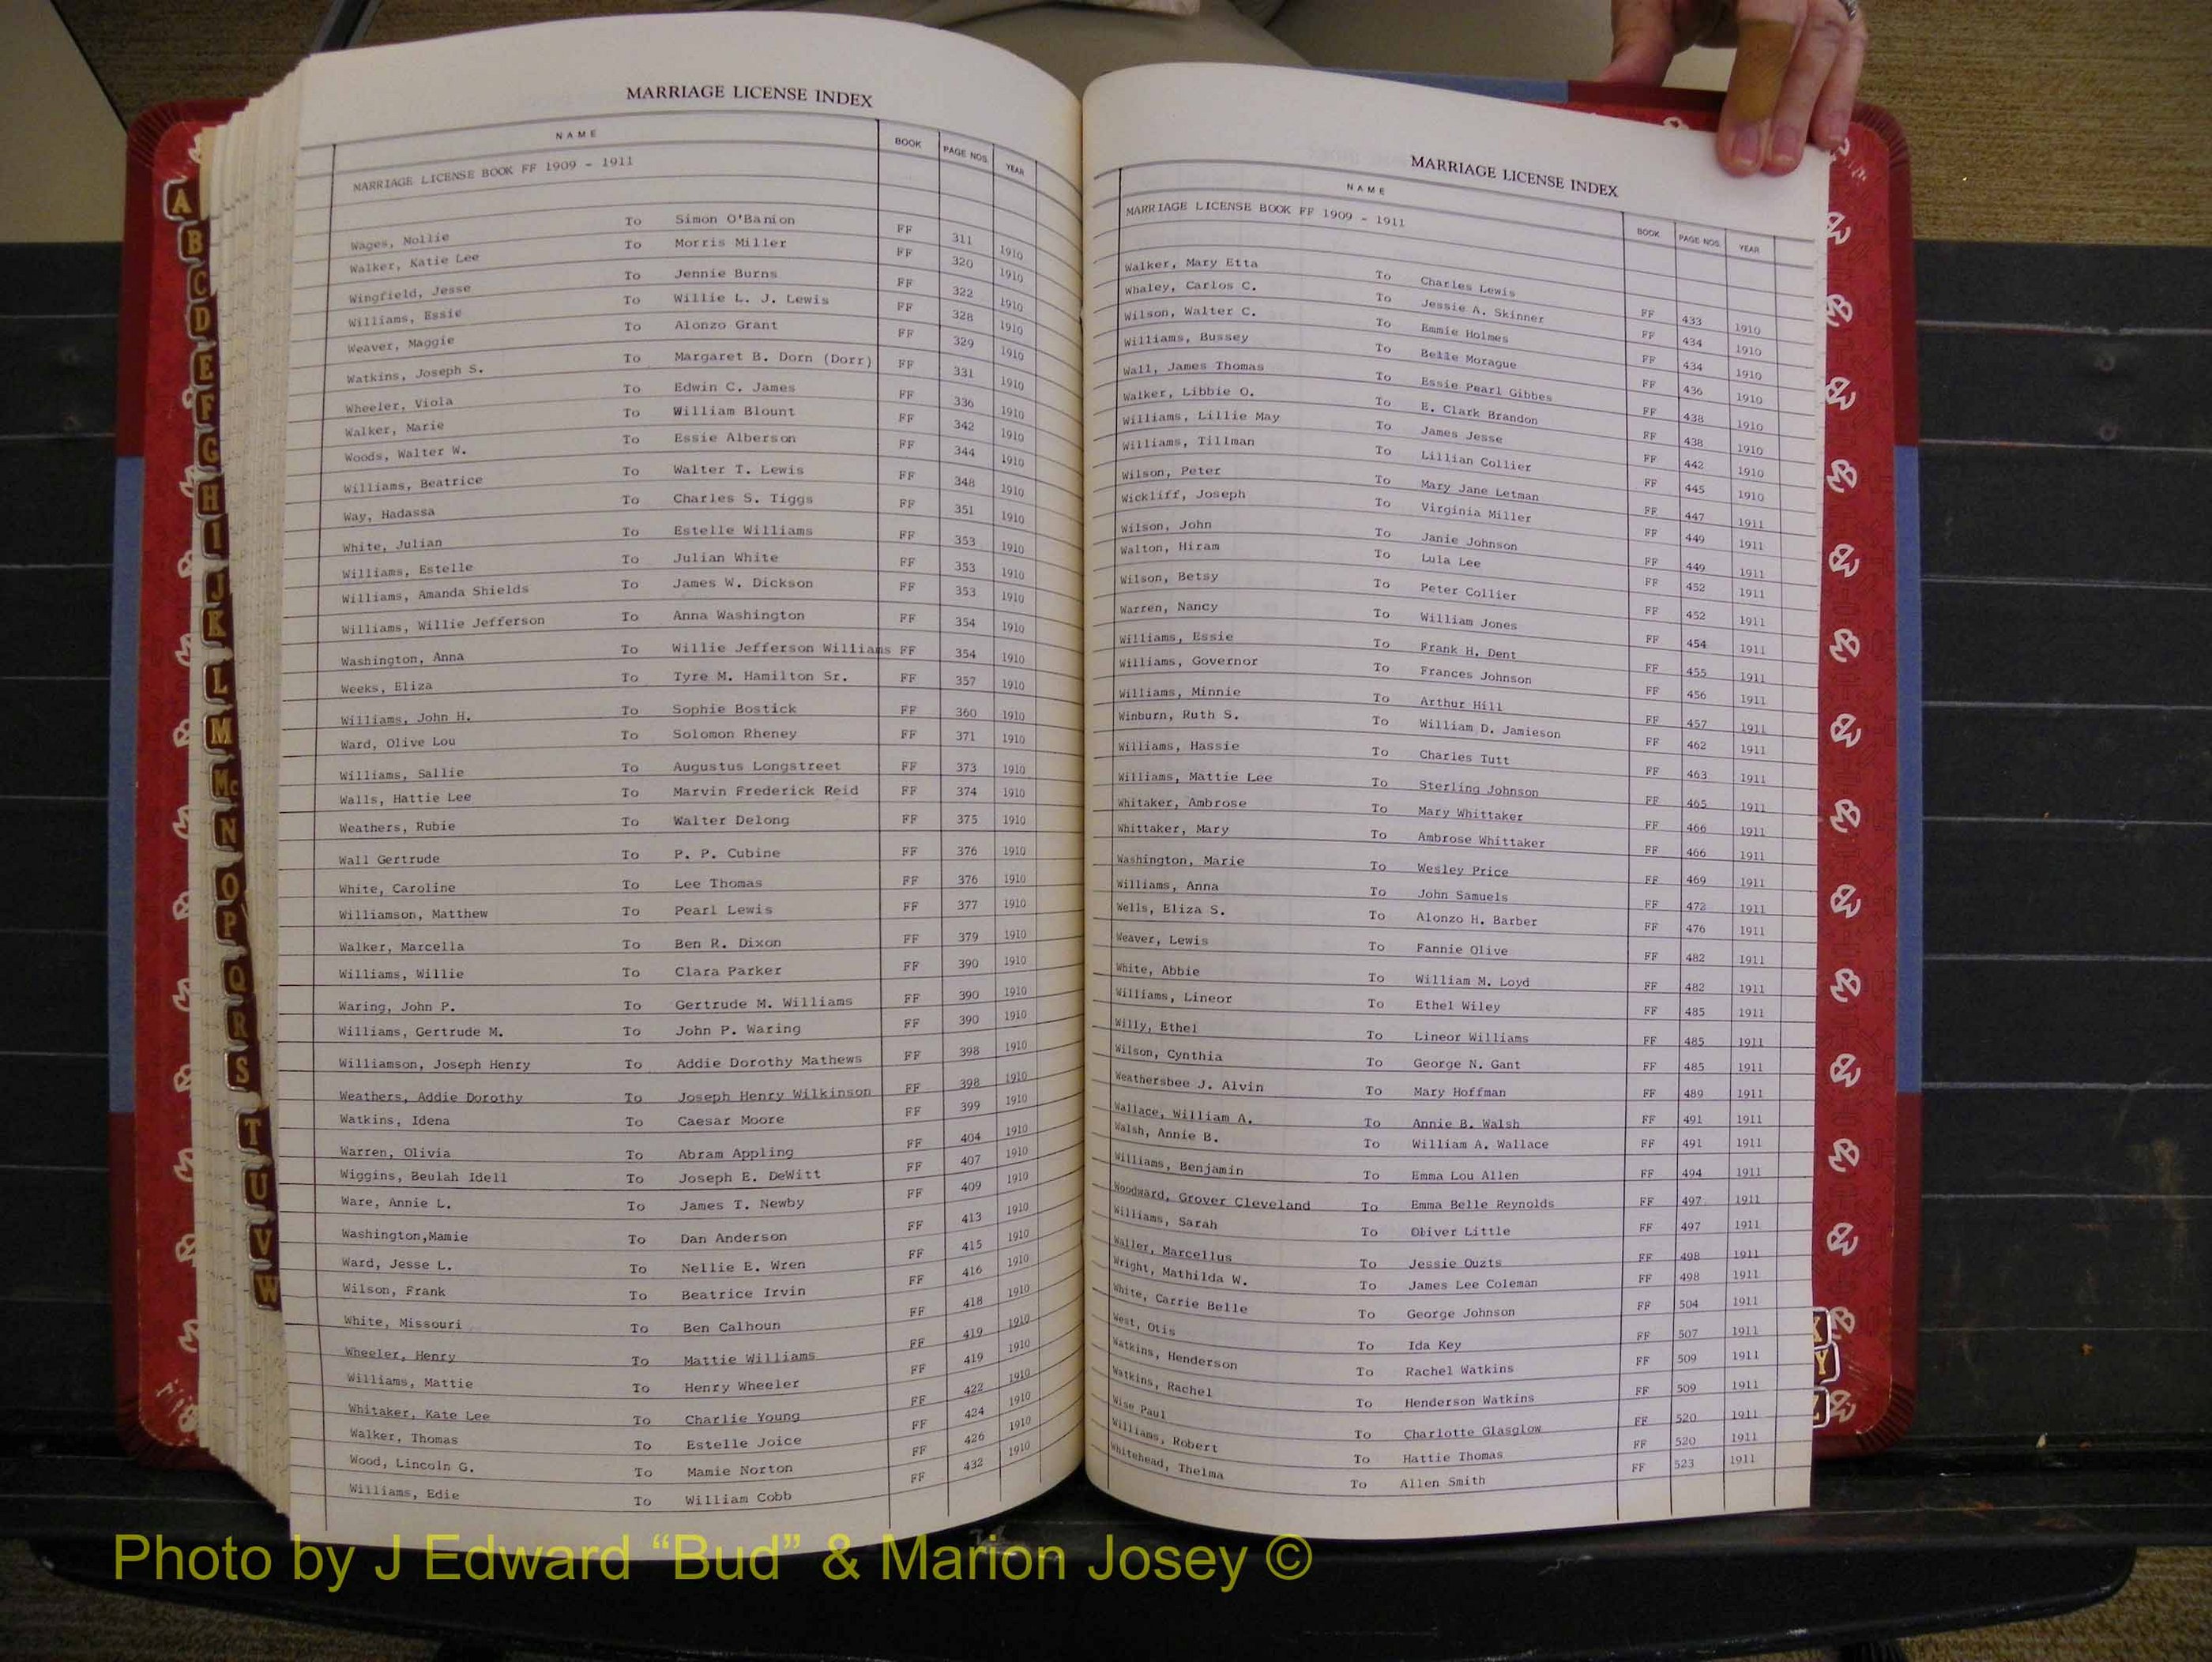 MARRIAGE LICENSE INDEX
NAME BOOK PAGE NOS. YEAR
MARRIAGE LICENSE BOOK FF 1909 - 1911
Wages, Nollie To Simon O'Banion FF 311 1910
Walker, Katie Lee To Morris Miller FF 320 1910
Wingfield, Jesse To Jennie Burns FF 322 1910
Williams, Essie To Willie L. J. Lewis FF 328 1910
Weaver, Maggie To Alonzo Grant FF 329 1910
Watkins, Joseph S. To Margaret B. Dorn (Dorr) FF 331 1910
Wheeler, Viola To Edwin C. James FF 336 1910
Walker, Marie To William Blount FF 342 1910
Woods, Walter W. To Essie Alberson FF 344 1910
Williams, Beatrice To Walter T. Lewis FF 348 1910
Way, Hadassa To Charles S. Tiggs FF 351 1910
White, Julian To Estelle Williams FF 353 1910
Williams, Estelle To Julian White FF 353 1910
Williams, Amanda Shields To James W. Dickson FF 353 1910
Williams, Willie Jefferson To Anna Washington FF 354 1910
Washington, Anna To Willie Jefferson Williams FF 354 1910
Weeks, Eliza To Tyre M. Hamilton Sr. FF 357 1910
Williams, John H. To Sophie Bostick FF 360 1910
Ward, Olive Lou To Solomon Rheney FF 371 1910
Williams, Sallie To Augustus Longstreet FF 373 1910
Walls, Hattie Lee To Marvin Frederick Reid FF 374 1910
Weathers, Rubie To Walter Delong FF 375 1910
Wall Gertrude To P. P. Cubine FF 376 1910
White, Caroline To Lee Thomas FF 376 1910
Williamson, Matthew To Pearl Lewis FF 377 1910
Walker, Marcella To Ben R. Dixon FF 379 1910
Williams, Willie To Clara Parker FF 390 1910
Waring, John P. To Gertrude M. Williams FF 390 1910
Williams, Gertrude M. To John P. Waring FF 390 1910
Williamson, Joseph Henry To Addie Dorothy Mathews FF 398 1910
Weathers, Addie Dorothy To Joseph Henry Wilkinson FF 398 1910
Watkins, Idena To Caesar Moore FF 399 1910
Warren, Olivia To Abram Appling FF 404 1910
Wiggins, Beulah Idell To Joseph E. DeWitt FF 407 1910
Ware, Annie L. To James T. Newby FF 409 1910
Washington,Mamie To Dan Anderson FF 413 1910
Ward, Jesse L. To Nellie E. Wren FF 415 1910
Wilson, Frank To Beatrice Irvin FF 416 1910
White, Missouri To Ben Calhoun FF 418 1910
Wheeler, Henry To Mattie Williams FF 419 1910
Williams, Mattie To Henry Wheeler FF 419 1910
Whitaker, Kate Lee To Charlie Young FF 422 1910
Walker, Thomas To Estelle Joice FF 424 1910
Wood, Lincoln G. To Mamie Norton FF 426 1910
Williams, Edie To William Cobb FF 432 1910
MARRIAGE LICENSE INDEX
NAME BOOK PAGE NOS. YEAR
MARRIAGE LICENSE BOOK FF 1909 - 1911
Walker, Mary Etta To Charles Lewis FF 433 1910
Whaley, Carlos C. To Jessie A. Skinner FF 434 1910
Wilson, Walter C. To Emmie Holmes FF 434 1910
Williams, Bussey To Belle Morague FF 436 1910
Wall, James Thomas To Essie Pearl Gibbes FF 438 1910
Walker, Libbie O. To E. Clark Brandon FF 438 1910
Williams, Lillie May To James Jesse FF 442 1910
Williams, Tillman To Lillian Collier FF 445 1910
Wilson, Peter To Mary Jane Letman FF 447 1911
Wickliff, Joseph To Virginia Miller FF 449 1911
Wilson, John To Janie Johnson FF 449 1911
Walton, Hiram To Lula Lee FF 452 1911
Wilson, Betsy To Peter Collier FF 452 1911
Warren, Nancy To William Jones FF 454 1911
Williams, Essie To Frank H. Dent FF 455 1911
Williams, Governor To Frances Johnson FF 456 1911
Williams, Minnie To Arthur Hill FF 457 1911
Winburn, Ruth S. To William D. Jamieson FF 462 1911
Williams, Hassie To Charles Tutt FF 463 1911
Williams, Mattie Lee To Sterling Johnson FF 465 1911
Whitaker, Ambrose To Mary Whittaker FF 466 1911
Whittaker, Mary To Ambrose Whittaker FF 466 1911
Washington, Marie To Wesley Price FF 469 1911
Williams, Anna To John Samuels FF 472 1911
Wells, Eliza S. To Alonzo H. Barber FF 476 1911
Weaver, Lewis To Fannie Olive FF 482 1911
White, Abbie To William M. Loyd FF 482 1911
Williams, Lineor To Ethel Wiley FF 485 1911
Willy, Ethel To Lineor Williams FF 485 1911
Wilson, Cynthia To George N. Gant FF 485 1911
Weathersbee J. Alvin To Mary Hoffman FF 489 1911
Wallace, William A. To Annie B. Walsh FF 491 1911
Walsh, Annie B. To William A. Wallace FF 491 1911
Williams, Benjamin To Emma Lou Allen FF 494 1911
Woodward, Grover Cleveland To Emma Belle Reynolds FF 497 1911
Williams, Sarah To Oliver Little FF 497 1911
Waller, Marcellus To Jessie Ouzts FF 498 1911
Wright, Mathilda W. To James Lee Coleman FF 498 1911
White, Carrie Belle To George Johnson FF 504 1911
West, Otis To Ida Key FF 507 1911
Watkins, Henderson To Rachel Watkins FF 509 1911
Watkins, Rachel To Henderson Watkins FF 509 1911
Wise Paul To Charlotte Glasglow FF 520 1911
Williams, Robert To Hattie Thomas FF 520 1911
Whitehead, Thelma To Allen Smith FF 523 1911
A
B
C
D
E
F
G
H
I
J
K
L
M
Mc
N
O
P
Q
R
S
T
U
V
W
X
Y
Z
Photo by J Edward “Bud” & Marion Josey ©